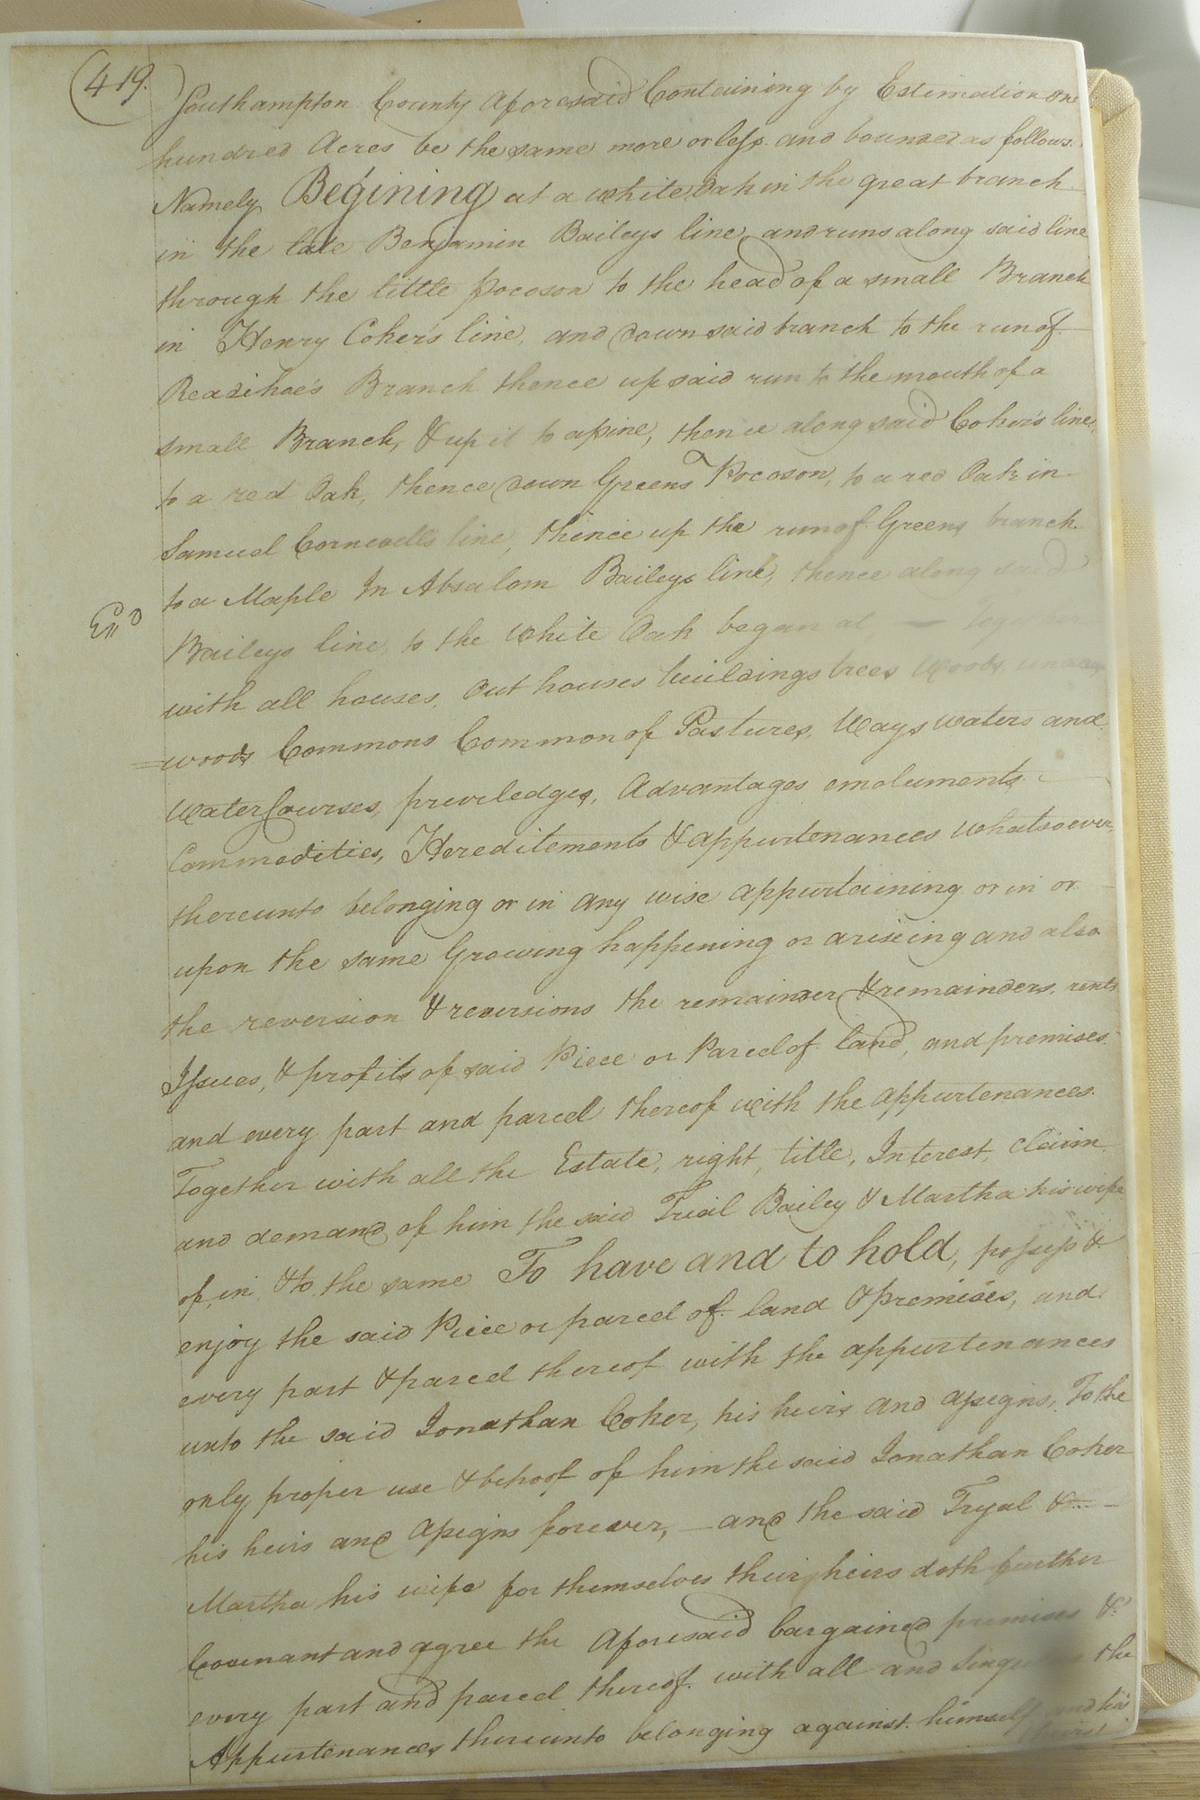 (419.)
Southampton County aforesaid Containing by Estimation one
hundred Acres be the same more or less and bounded as follows.
Namely Begining at a white Oak in the great branch
in the late Benjamin Baileys line, and runs along said line
through the little pocoson to the head of a small Branch
in Henry Coker's line, and down said branch to the run of
Branch thence up said run to the mouth of a
small Branch, & up it to a pine, thence along said Coker's line,
to a red Oak, thence down Greens Pocoson, to a red Oak in
Samuel line, thence up the run of Greens branch
to a Maple In Absalom Baileys line, thence along said
Exd
Baileys line, to the White Oak began at, — Together
with all houses, Out houses buildings trees Woods, under
=woods Commons Common of Pastures, Ways waters and
Water Courses, priviledges, Advantages emoluments
Commodities, Hereditements & appurtenances whatsoever,
thereunto belonging or in any wise appurtaining or in or
upon the same Growing happening or ariseing and also
the reversion & reversions the remainder & remainders, rents
Issues, & profits of said Piece or Parcel of land, and premises
and every part and parcel thereof with the appurtenances.
Together with all the Estate, right, title, Interest, claim
and demand of him the said Trial Bailey & Martha his wife
of, in, & to, the same To have and to hold, possess &
enjoy the said Piece or parcel of land & premises, and
every part & parcel thereof with the appurtenances
unto the said Jonathan Coker, his heirs and assigns, To the
only proper use & behoof of him the said Jonathan Coker
his heirs and assigns forever, — and the said Tryal &
Martha his wife for themselves their heirs doth further
Covenant and agree the Aforesaid bargained premises &
every part and parcel thereof with all and Singular the
Appurtenances thereunto belonging against himself and his
heirs